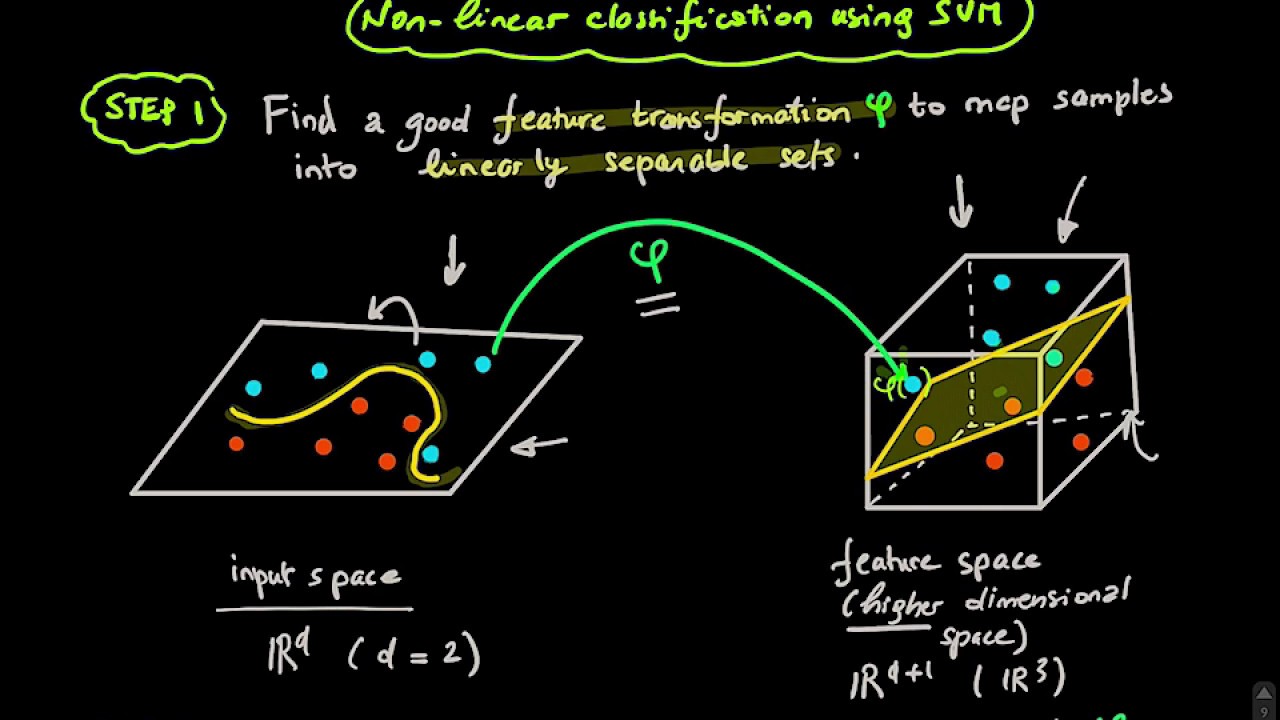 Non-linear classification using SVM
STEP 1
Find a good feature transformation φ to map samples
into linearly separable sets.
φ
φ( )
input space
ℝᵈ (d = 2)
feature space
(higher dimensional
space)
ℝᵈ⁺¹ (ℝ³)
9